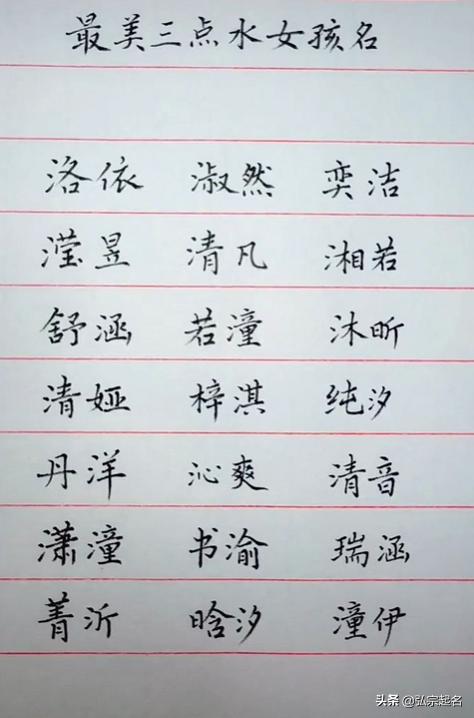 最美三点水女孩名
洛依 淑然 奕洁
滢昱 清凡 湘若
舒涵 若潼 沐昕
清娅 梓淇 纯汐
丹洋 沁爽 清音
潇潼 书渝 瑞涵
菁沂 晗汐 潼伊
头条 @弘宗起名